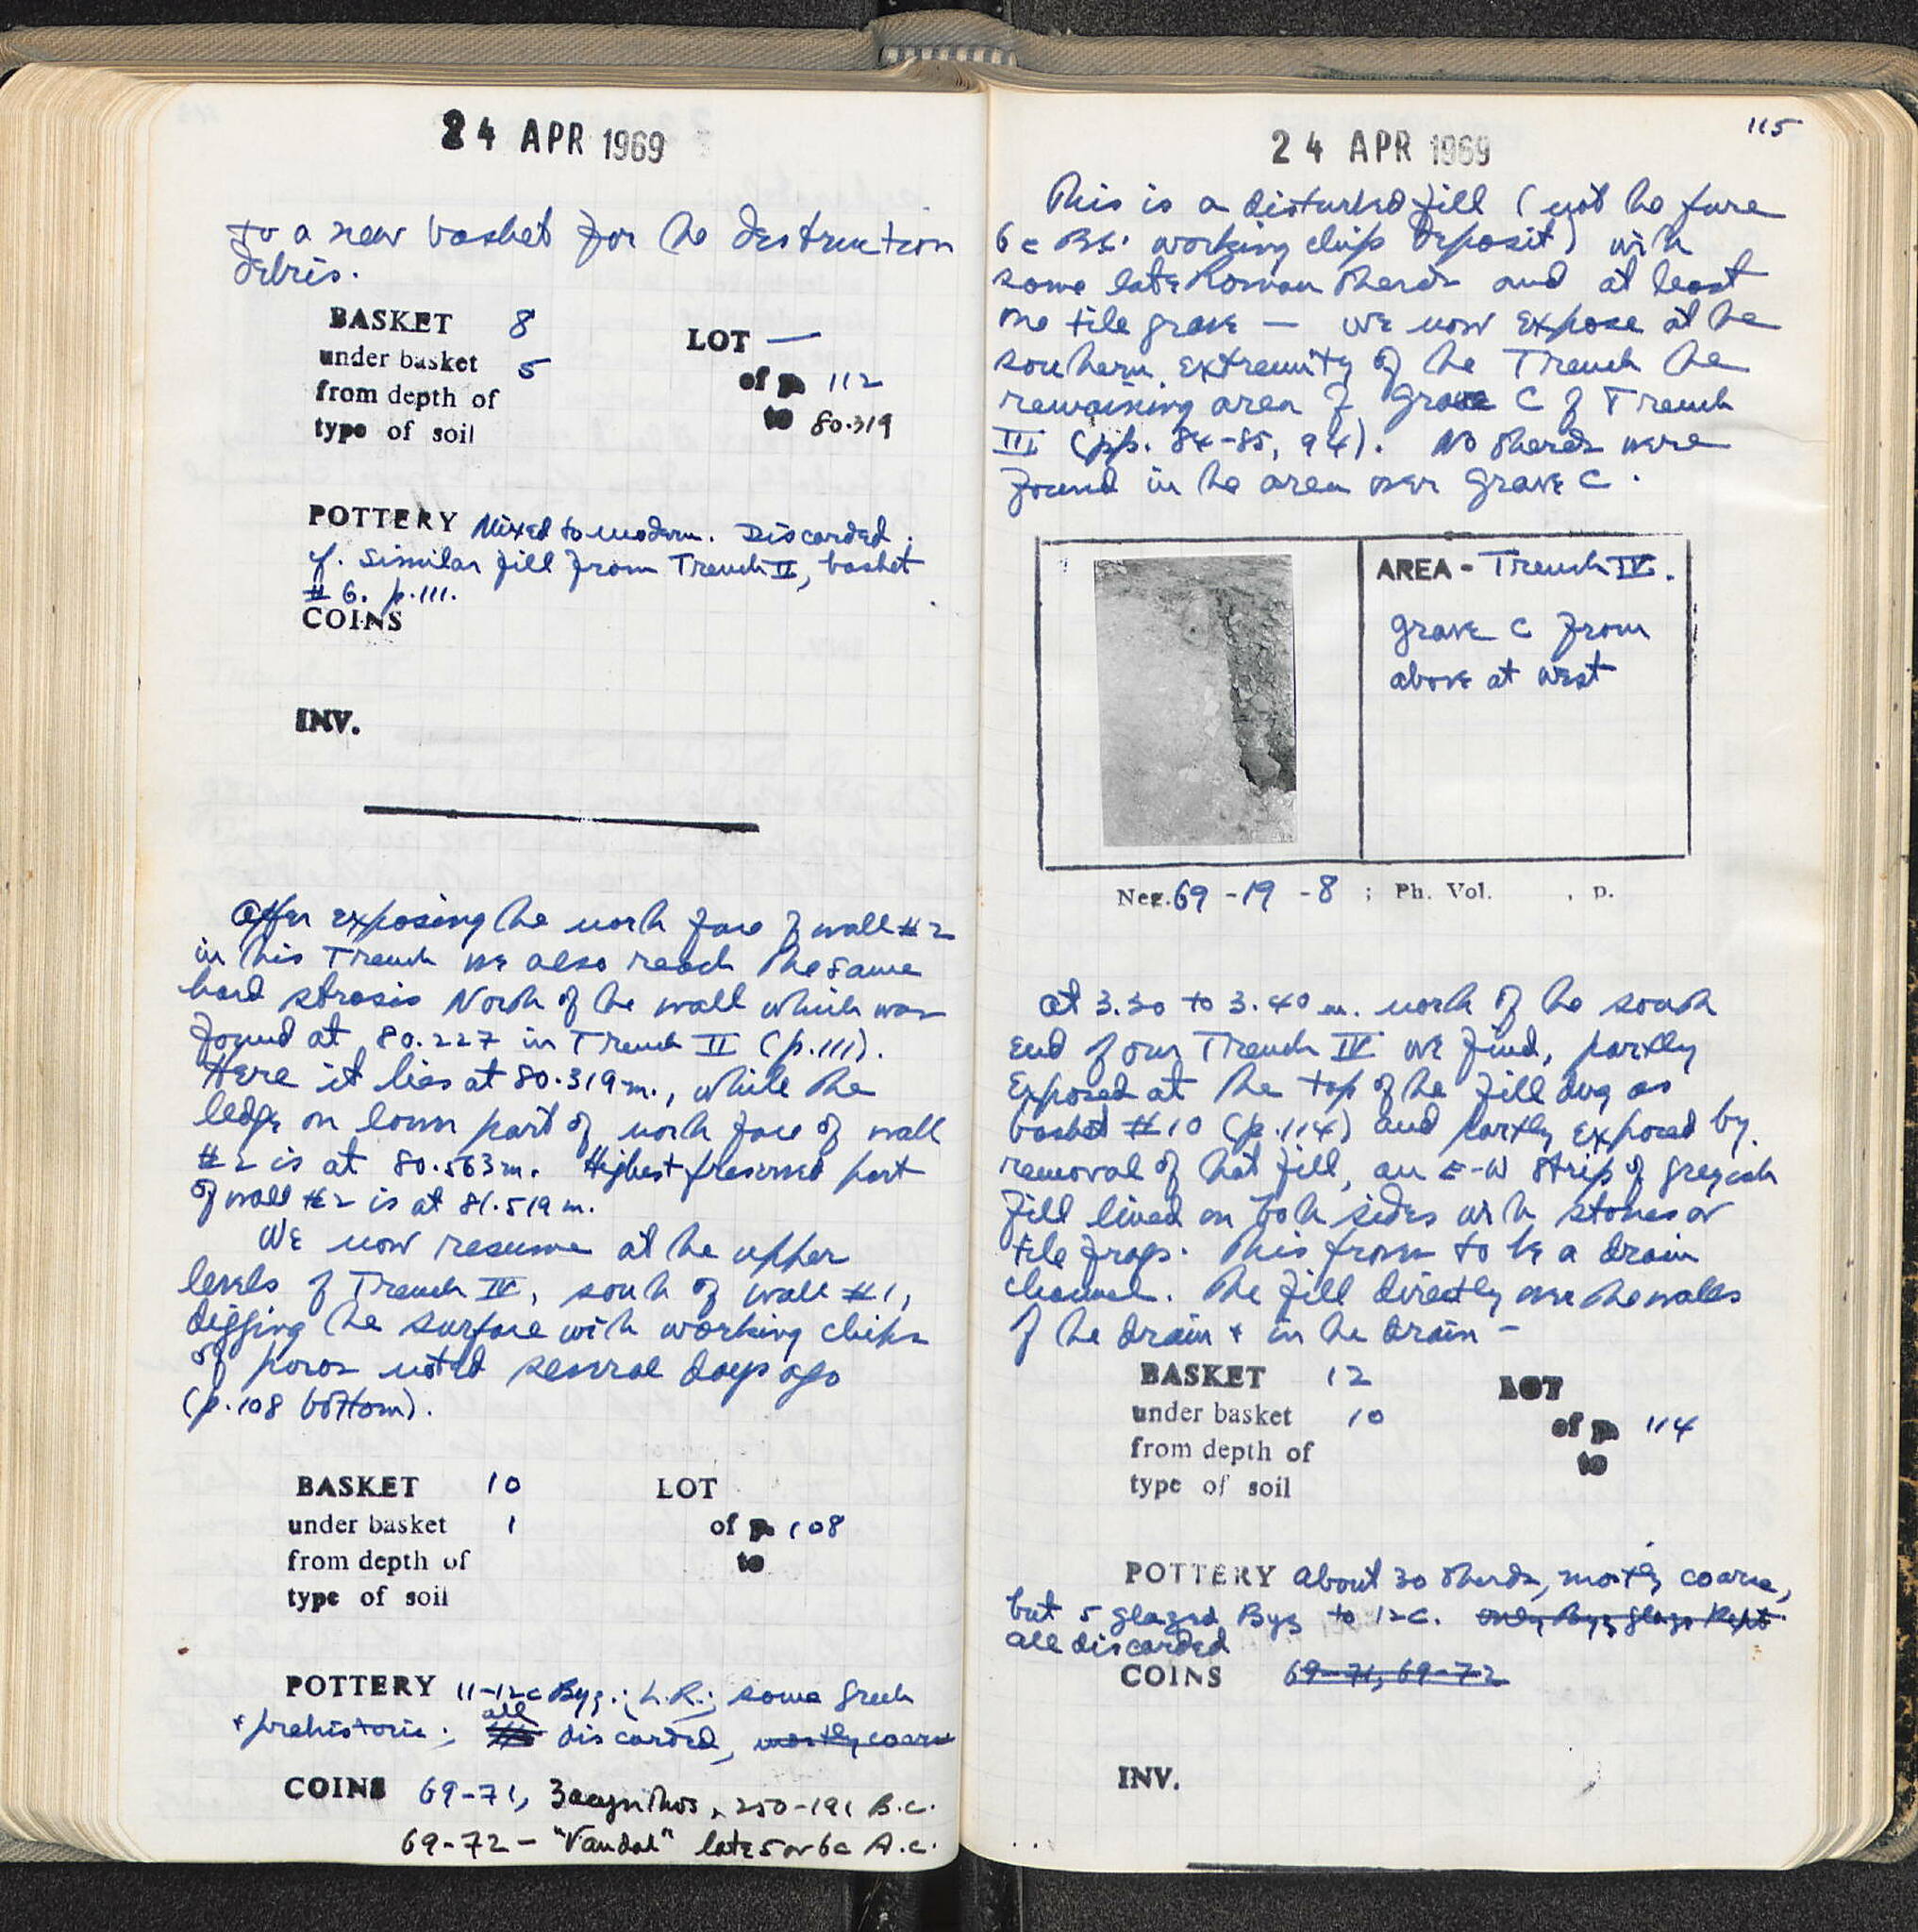 24 APR 1969
to a new basket for the destruction
debris.
BASKET 8
LOT —
under basket 5
of p. 112
from depth of
to 80.319
type of soil
POTTERY Mixed to modern. Discarded.
cf. similar fill from Trench II, basket
# 6. p.111.
COINS
INV.
After exposing the north face of wall #2
in this Trench we also reach the same
hard strosis North of the wall which was
found at 80.227 in Trench II (p.111).
Here it lies at 80.319m., while the
ledge on lower part of north face of wall
#2 is at 80.563m. Highest preserved part
of wall #2 is at 81.519m.
We now resume at the upper
levels of Trench IV, south of wall #1,
digging the surface with working chips
of poros noted several days ago
(p.108 bottom).
BASKET 10
LOT
under basket 1
of p. 108
from depth of
to
type of soil
POTTERY 11-12c Byz.; L.R.; some Greek
+ prehistoric; all discarded, mostly coarse
COINS 69-71, Zacynthos, 250-191 B.C.
69-72 - "Vandal" late 5 or 6c A.C.
115
24 APR 1969
This is a disturbed fill (not the pure
6c B.C. working chip deposit) with
some late Roman sherds and at least
one tile grave — we now expose at the
southern extremity of the Trench the
remaining area of Grave C of Trench
III (pp. 84-85, 94). No sherds were
found in the area over Grave C.
AREA - Trench IV.
Grave C from
above at west
Neg. 69-19-8 ; Ph. Vol. , p.
At 3.30 to 3.40 m. north of the south
end of our Trench IV we find, partly
exposed at the top of the fill dug as
basket #10 (p.114) and partly exposed by
removal of that fill, an E-W strip of greyish
fill lined on both sides with stones or
tile frags. This proves to be a drain
channel. The fill directly over the walls
of the drain + in the drain -
BASKET 12
LOT
under basket 10
of p. 114
from depth of
to
type of soil
POTTERY About 30 sherds, mostly coarse,
but 5 glazed Byz to 12c. only Byz glaze kept
all discarded
COINS 69-71, 69-72
INV.